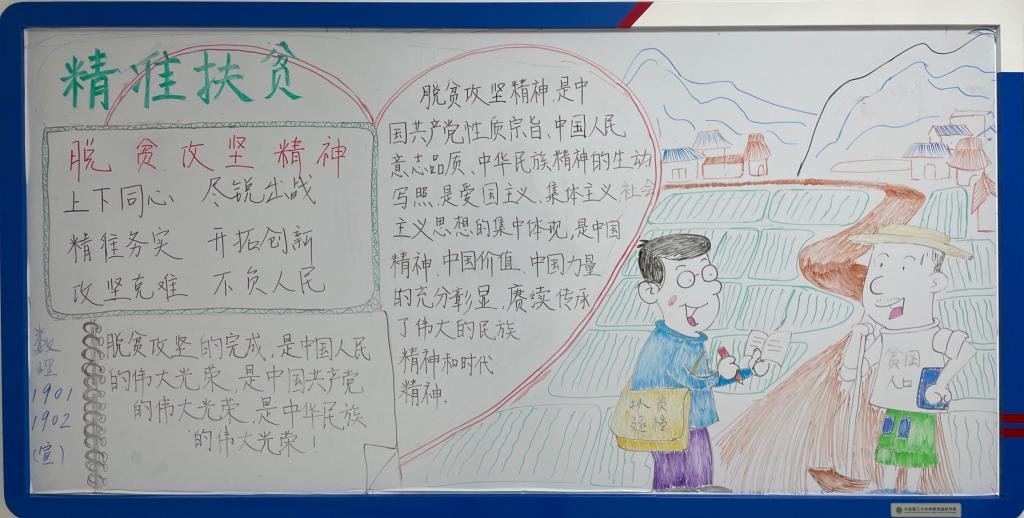 精准扶贫
脱贫攻坚精神
上下同心 尽锐出战
精准务实 开拓创新
攻坚克难 不负人民
数理
1901
1902
(宣)
脱贫攻坚的完成,是中国人民
的伟大光荣,是中国共产党
的伟大光荣,是中华民族
的伟大光荣!
脱贫攻坚精神,是中
国共产党性质宗旨、中国人民
意志品质、中华民族精神的生动
写照,是爱国主义、集体主义、社会
主义思想的集中体现,是中国
精神、中国价值、中国力量
的充分彰显,赓续传承
了伟大的民族
精神和时代
精神.
扶贫
贫困
人口